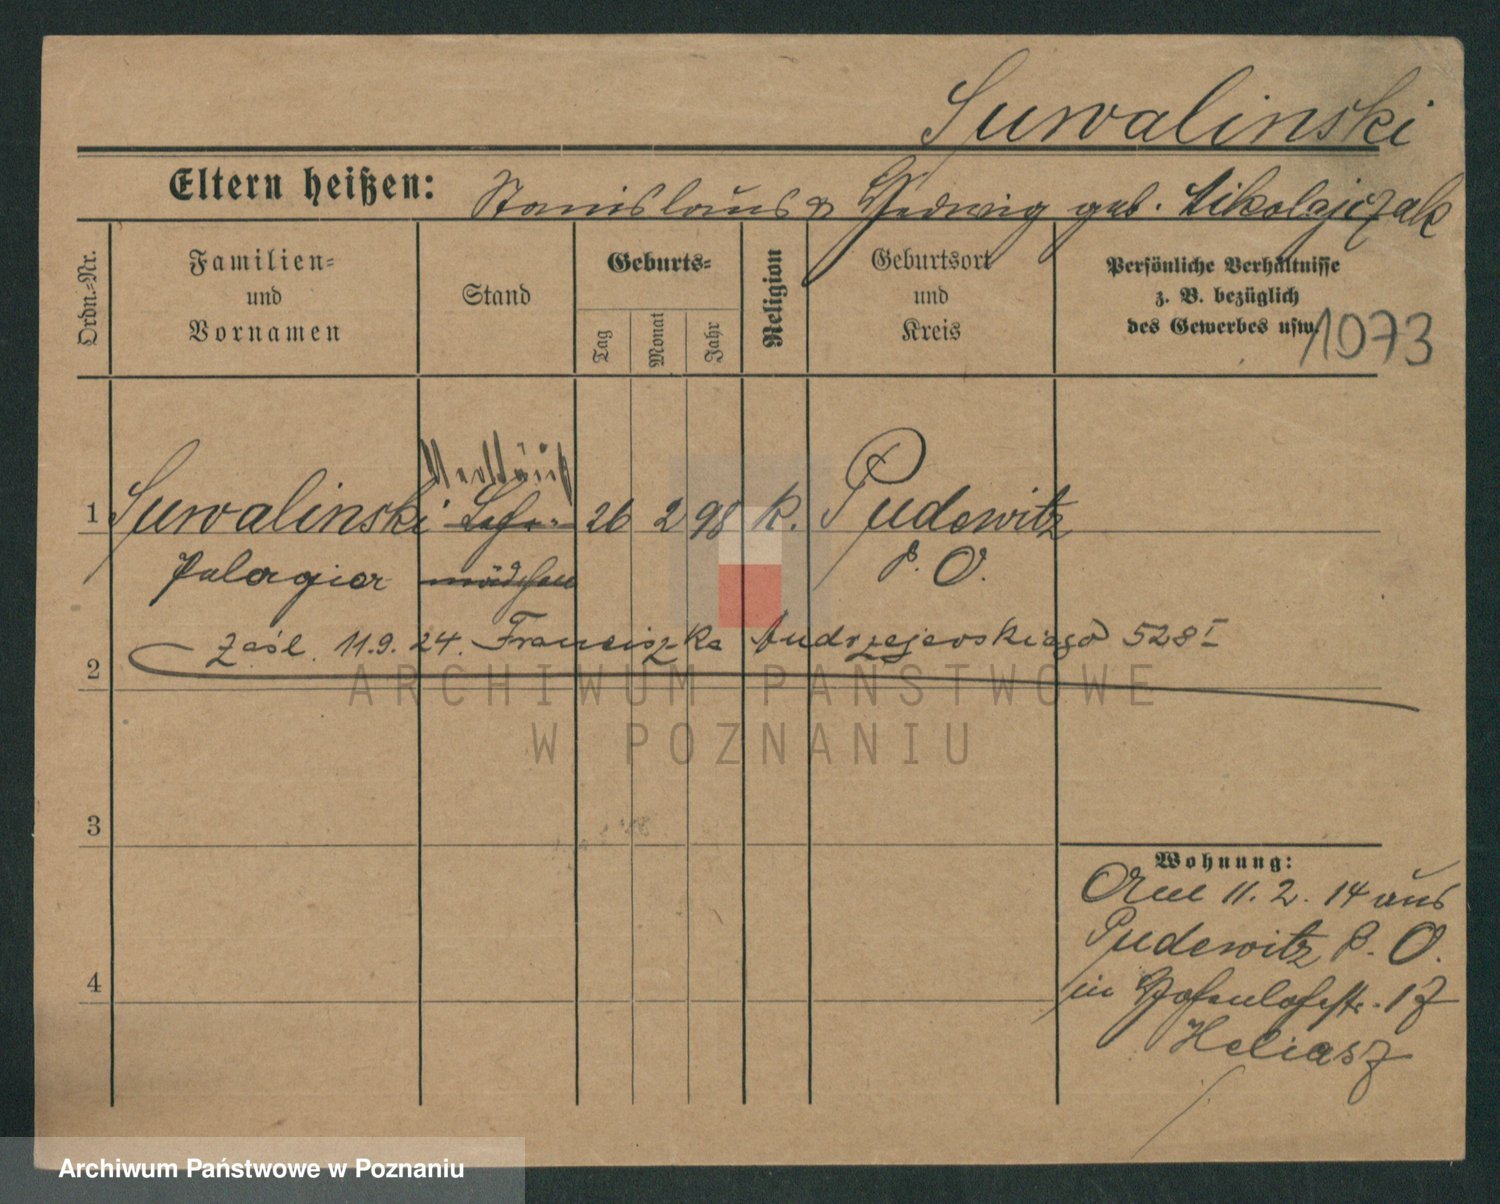 Suwalinski
Eltern heißen: Stanislaus & Hedwig geb. Nikolajczak
Ordn.-Nr.
Familien- und Vornamen
Stand
Geburts-
Tag
Monat
Jahr
Religion
Geburtsort und Kreis
Persönliche Verhältnisse
z. B. bezüglich
des Gewerbes usw.
1073
Verkäuf
1 Suwalinski Lehr- 26 2 98 k. Pudewitz
Pelagia mädchen P. O.
zaśl. 11.9.24. Franciszka Andrzejewskiego 528 I
2
ARCHIWUM PAŃSTWOWE
W POZNANIU
3
Wohnung:
Am 11. 2. 14 aus
Pudewitz P. O.
4
in Hohenlohestr. 17
Heliasz
Archiwum Państwowe w Poznaniu